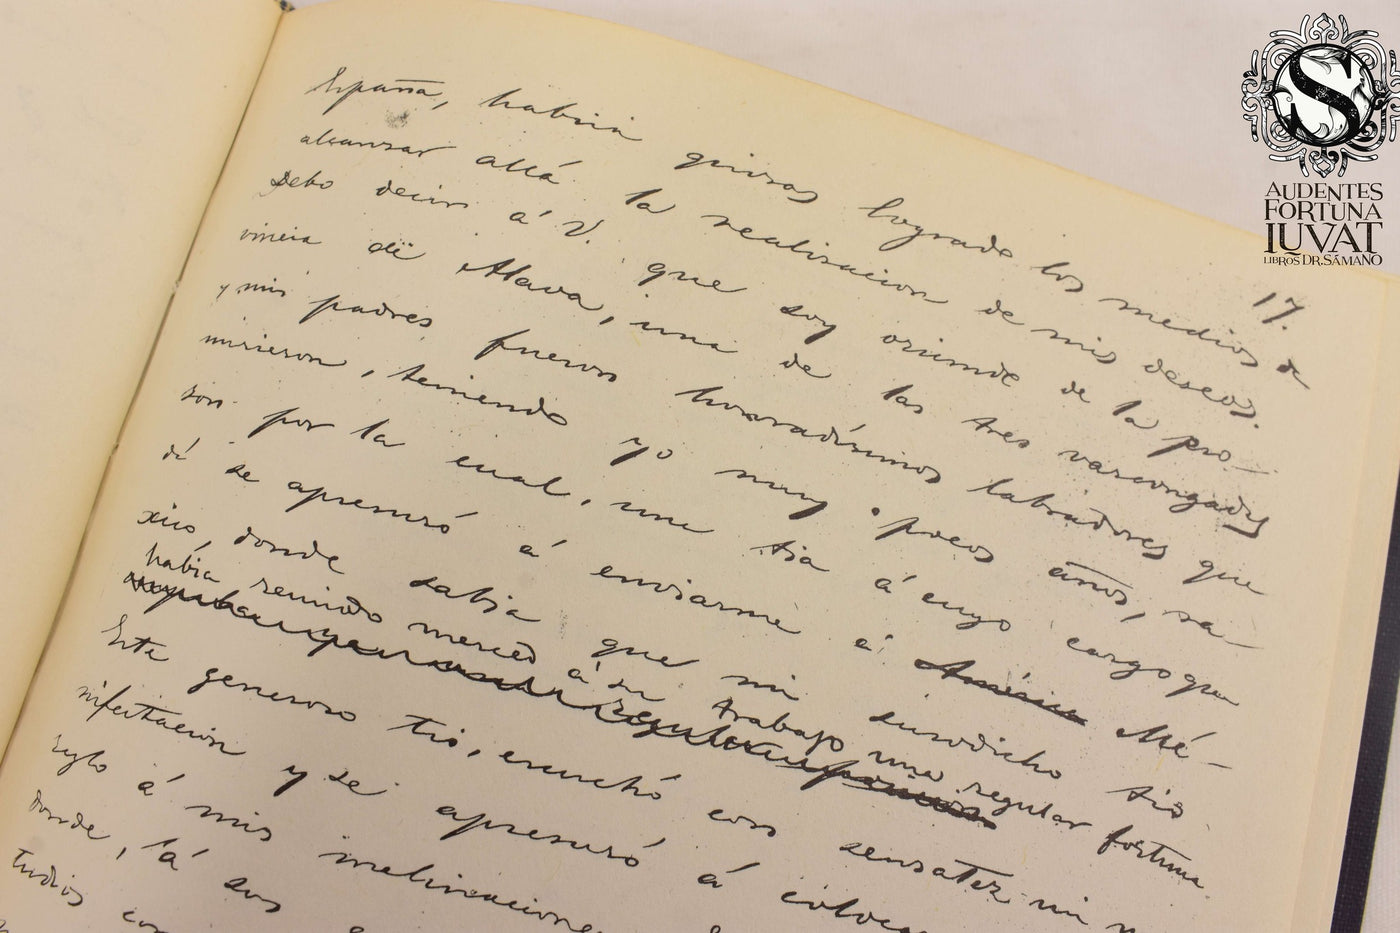 17.
España, habria quizas logrado los medios de
alcanzar allá la realizacion de mis deseos.
Debo decir á V. que soy oriundo de la pro-
vincia de Alava, una de las tres vascongadas
y mis padres fueron honradísimos labradores que
murieron, teniendo yo muy pocos años, ra-
zon por la cual, una tia á cuyo cargo que
dé se apresuró á enviarme á América Mé-
xico, donde sabia que mi susodicho tio
habia reunido merced á su trabajo una regular fortuna
Este generoso tio, escuchó con sensatez mi
nifestacion y se apresuró á coloca
reglo á mis inclinacione
donde, á sus
tudios con
AUDENTES
FORTUNA
IUVAT
LIBROS DR. SÁMANO